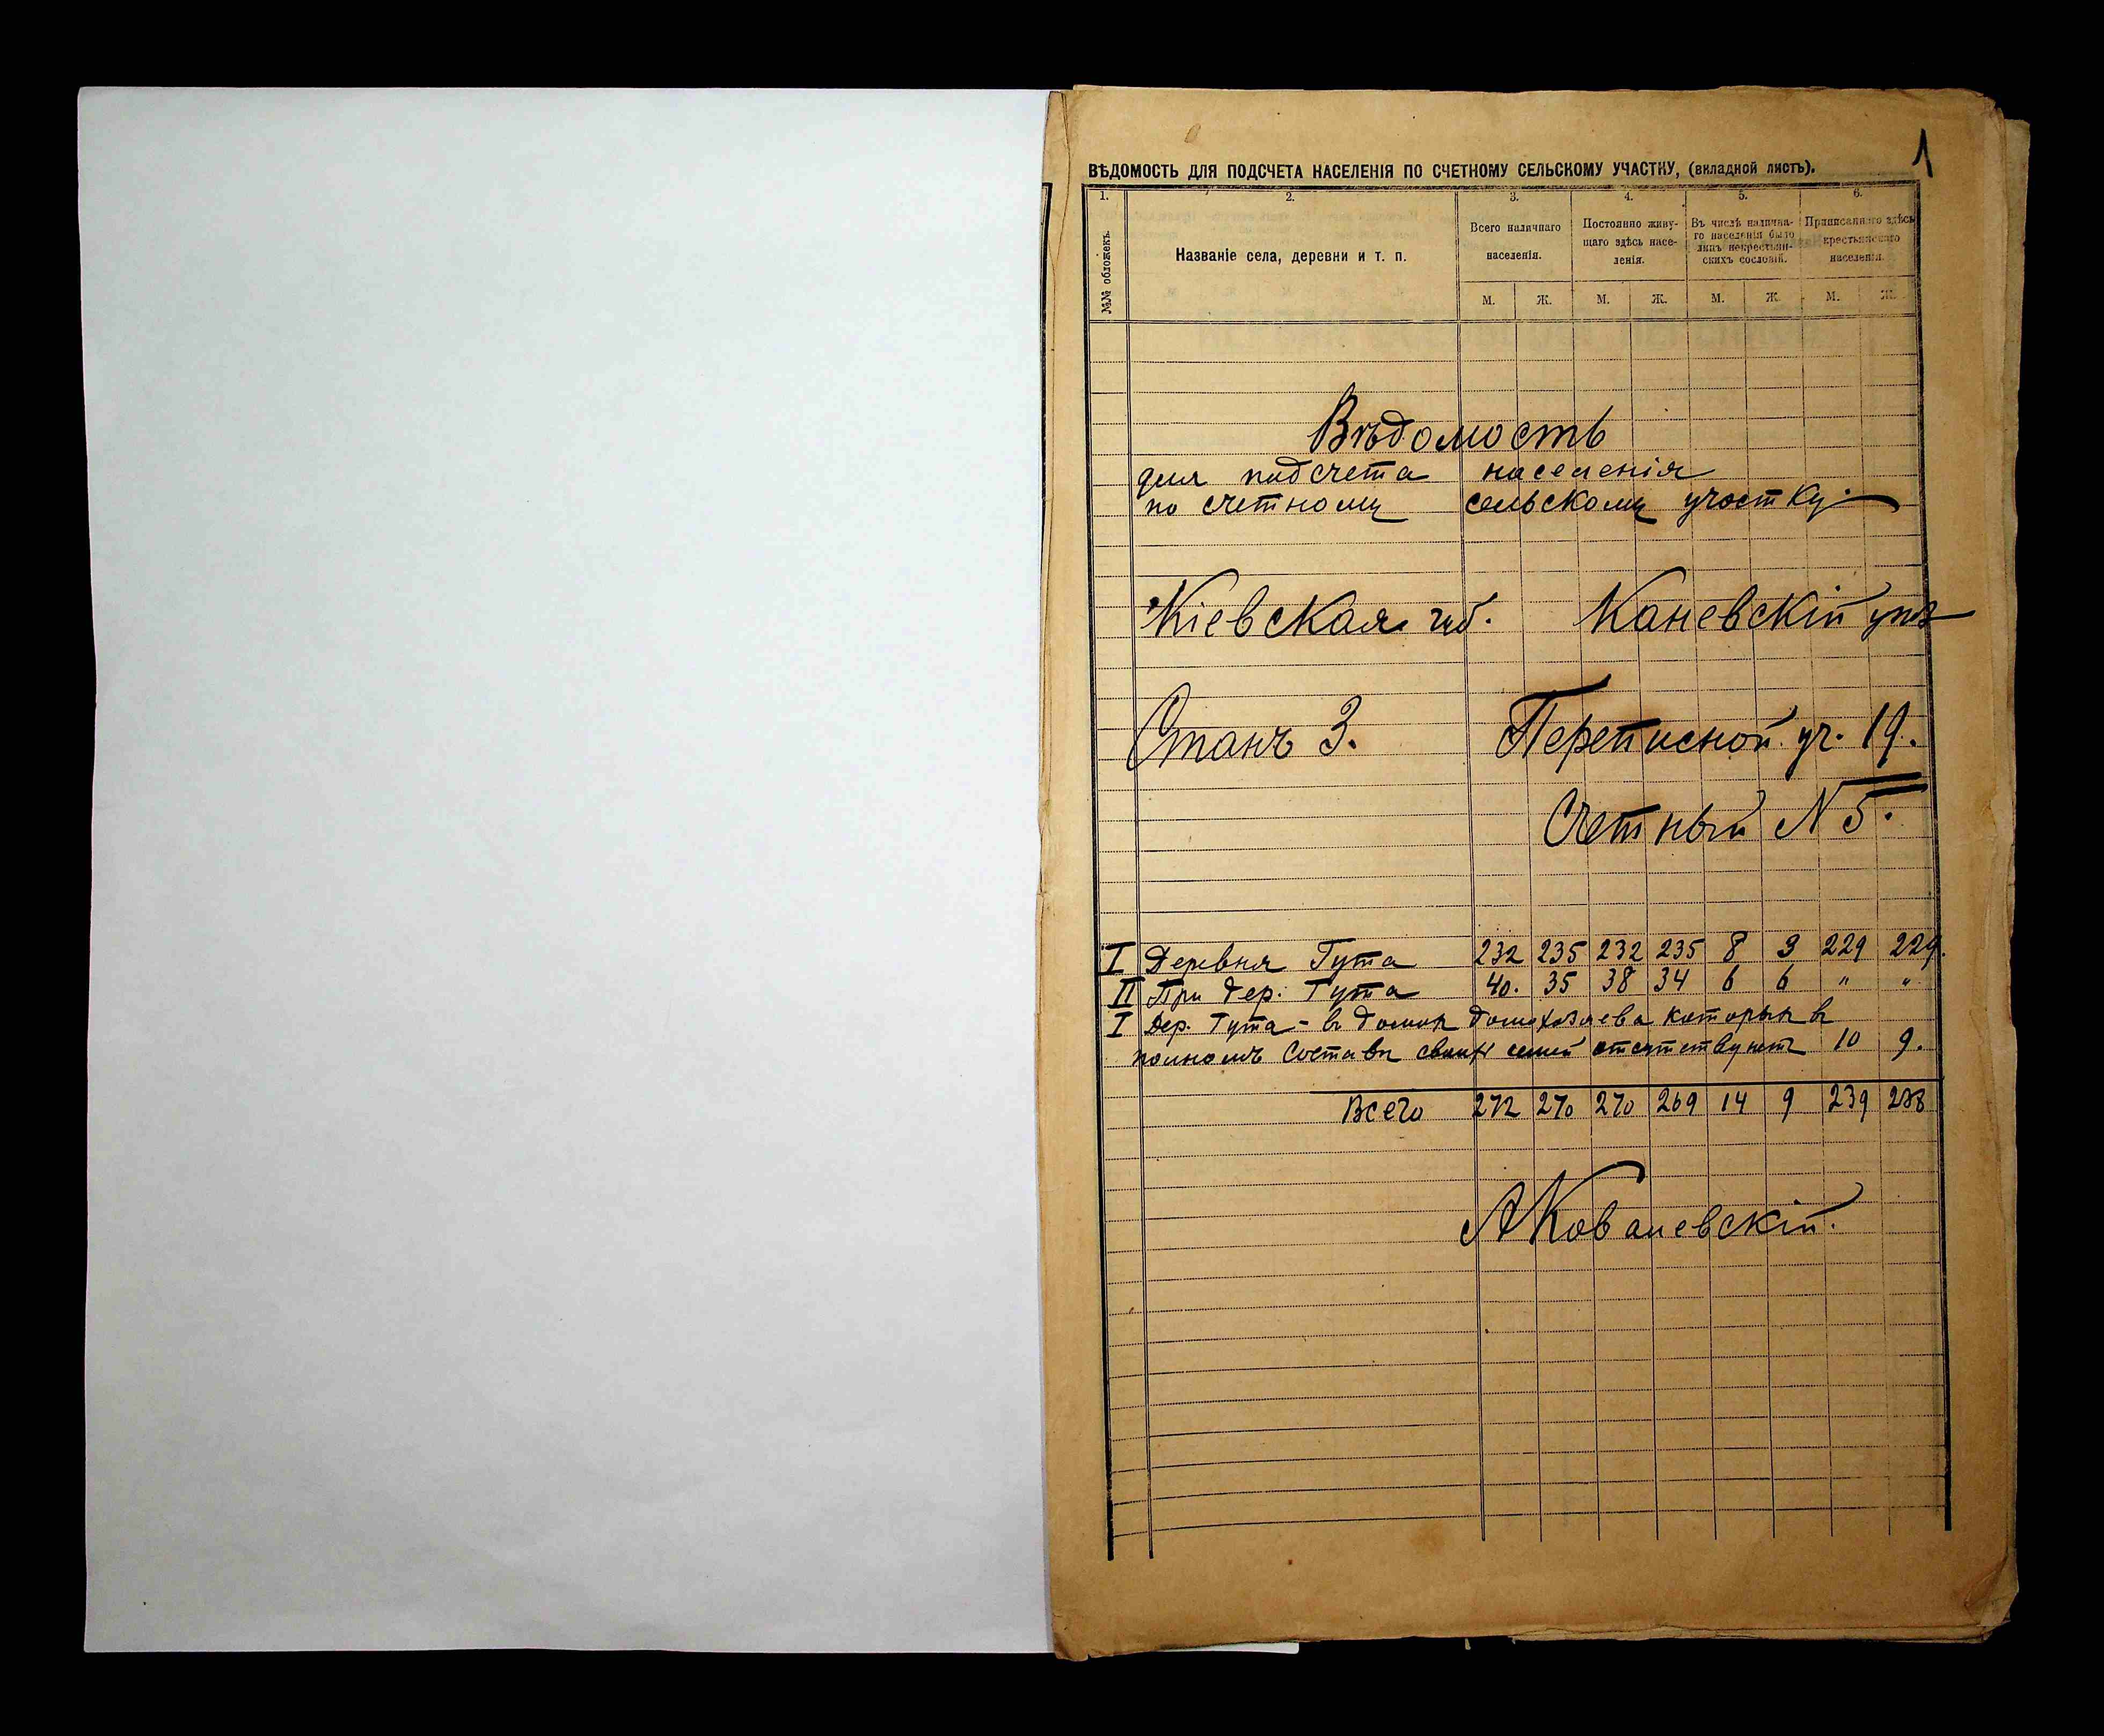 1
ВѢДОМОСТЬ ДЛЯ ПОДСЧЕТА НАСЕЛЕНІЯ ПО СЧЕТНОМУ СЕЛЬСКОМУ УЧАСТКУ, (вкладной листъ).
1. 2. 3. 4. 5. 6.
№№ обложекъ.
Названіе села, деревни и т. п.
Всего наличнаго
населенія.
Постоянно живу-
щаго здѣсь насе-
ленія.
Въ числѣ налична-
го населенія было
лицъ некрестьян-
скихъ сословій.
Приписаннаго здѣсь
крестьянскаго
населенія.
М. Ж. М. Ж. М. Ж. М. Ж.
Вѣдомость
для подсчета населенія
по счетному сельскому участку.
Кіевская губ. Каневскій уѣз
Станъ 3. Переписной уч. 19.
Счетный N 5.
I Деревня Гута 232 235 232 235 8 3 229 229.
II При дер. Гута 40. 35 38 34 6 6 " "
I Дер. Гута - въ домах домохозяева которых в
полномъ составѣ своих семей отсутствуютъ 10 9.
Всего 272 270 270 269 14 9 239 238
АКовалевскій.